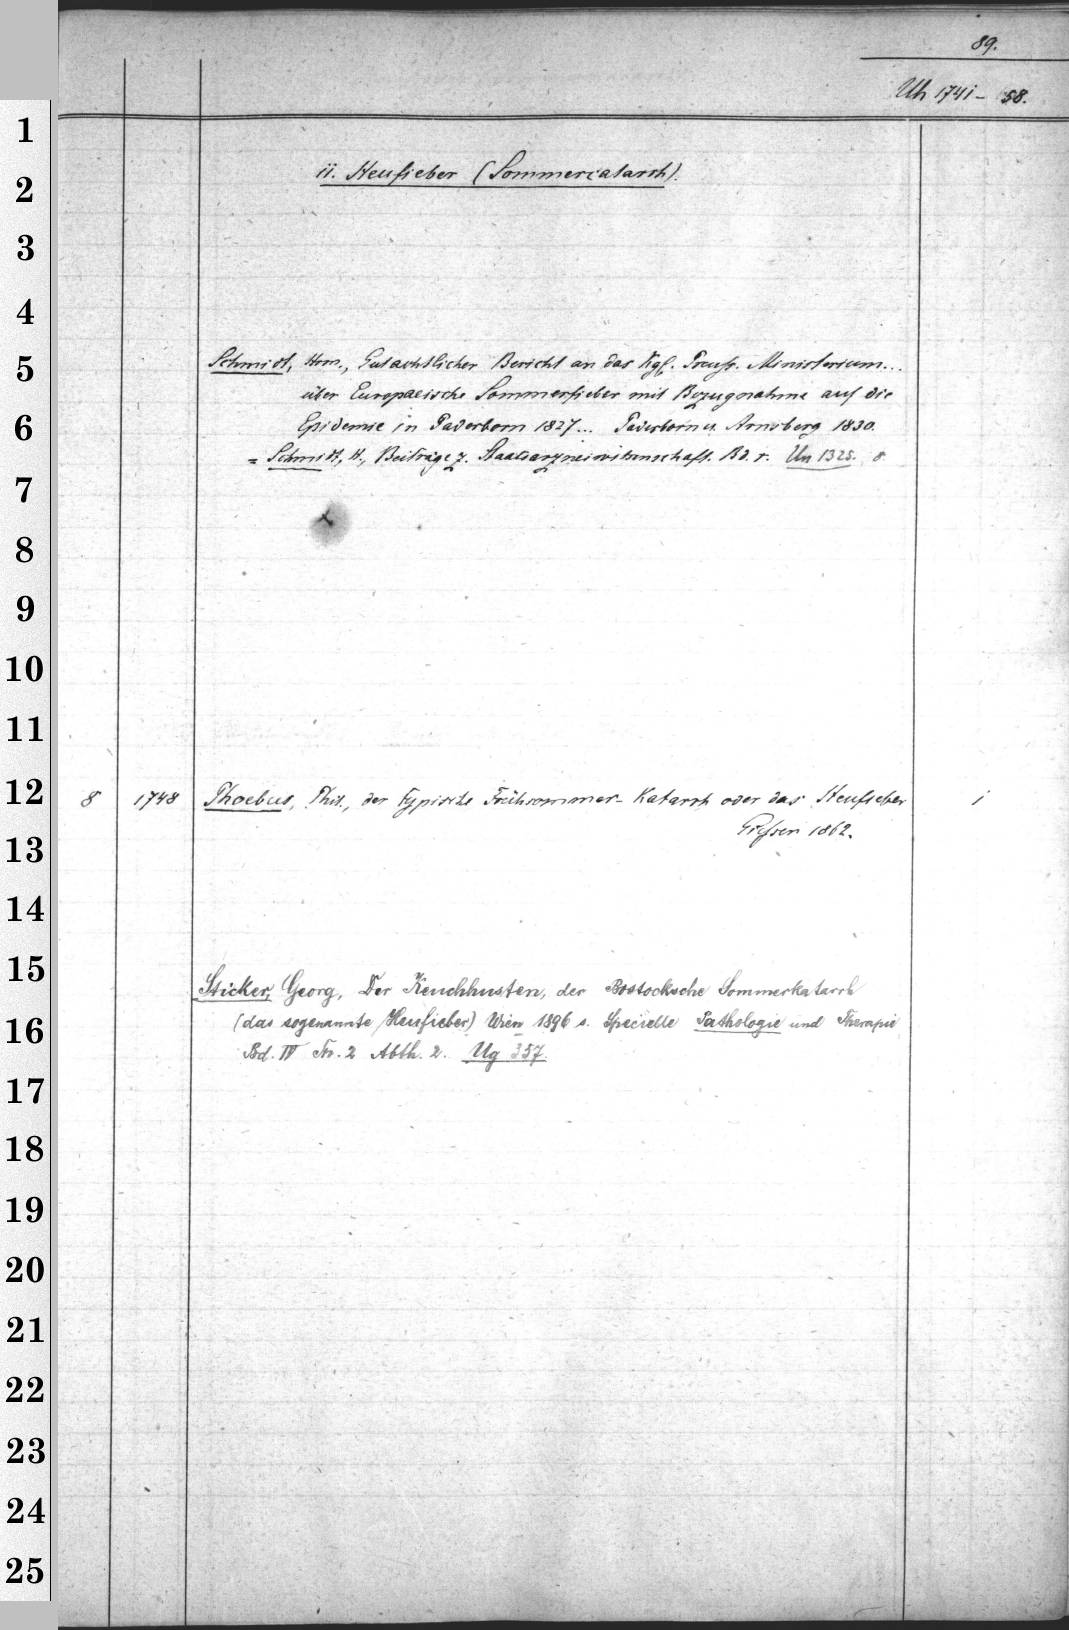 89.
Uh 1741-58.
ii. Heufieber (Sommercatarrh).
Schmidt, Hm., Gutachtlicher Bericht an das Kgl. Preuss. Ministerium...
über Europaeische Sommerfieber mit Bezugnahme auf die
Epidemie in Paderborn 1827... Paderborn u. Arnsberg 1830.
= Schmidt, H., Beiträge z. Staatsarzneiwissenschaft. Bd. 1. Un 1325. 8
8 1748 Phoebus, Phil., der typische Frühsommer-Katarrh oder das Heufieber 1
Giessen 1862.
Sticker, Georg, Der Keuchhusten, der Bostocksche Sommerkatarrh
(das sogenannte Heufieber) Wien 1896 s. Specielle Pathologie und Therapie
Bd. IV Th. 2 Abth. 2. Ug 357.
1
2
3
4
5
6
7
8
9
10
11
12
13
14
15
16
17
18
19
20
21
22
23
24
25